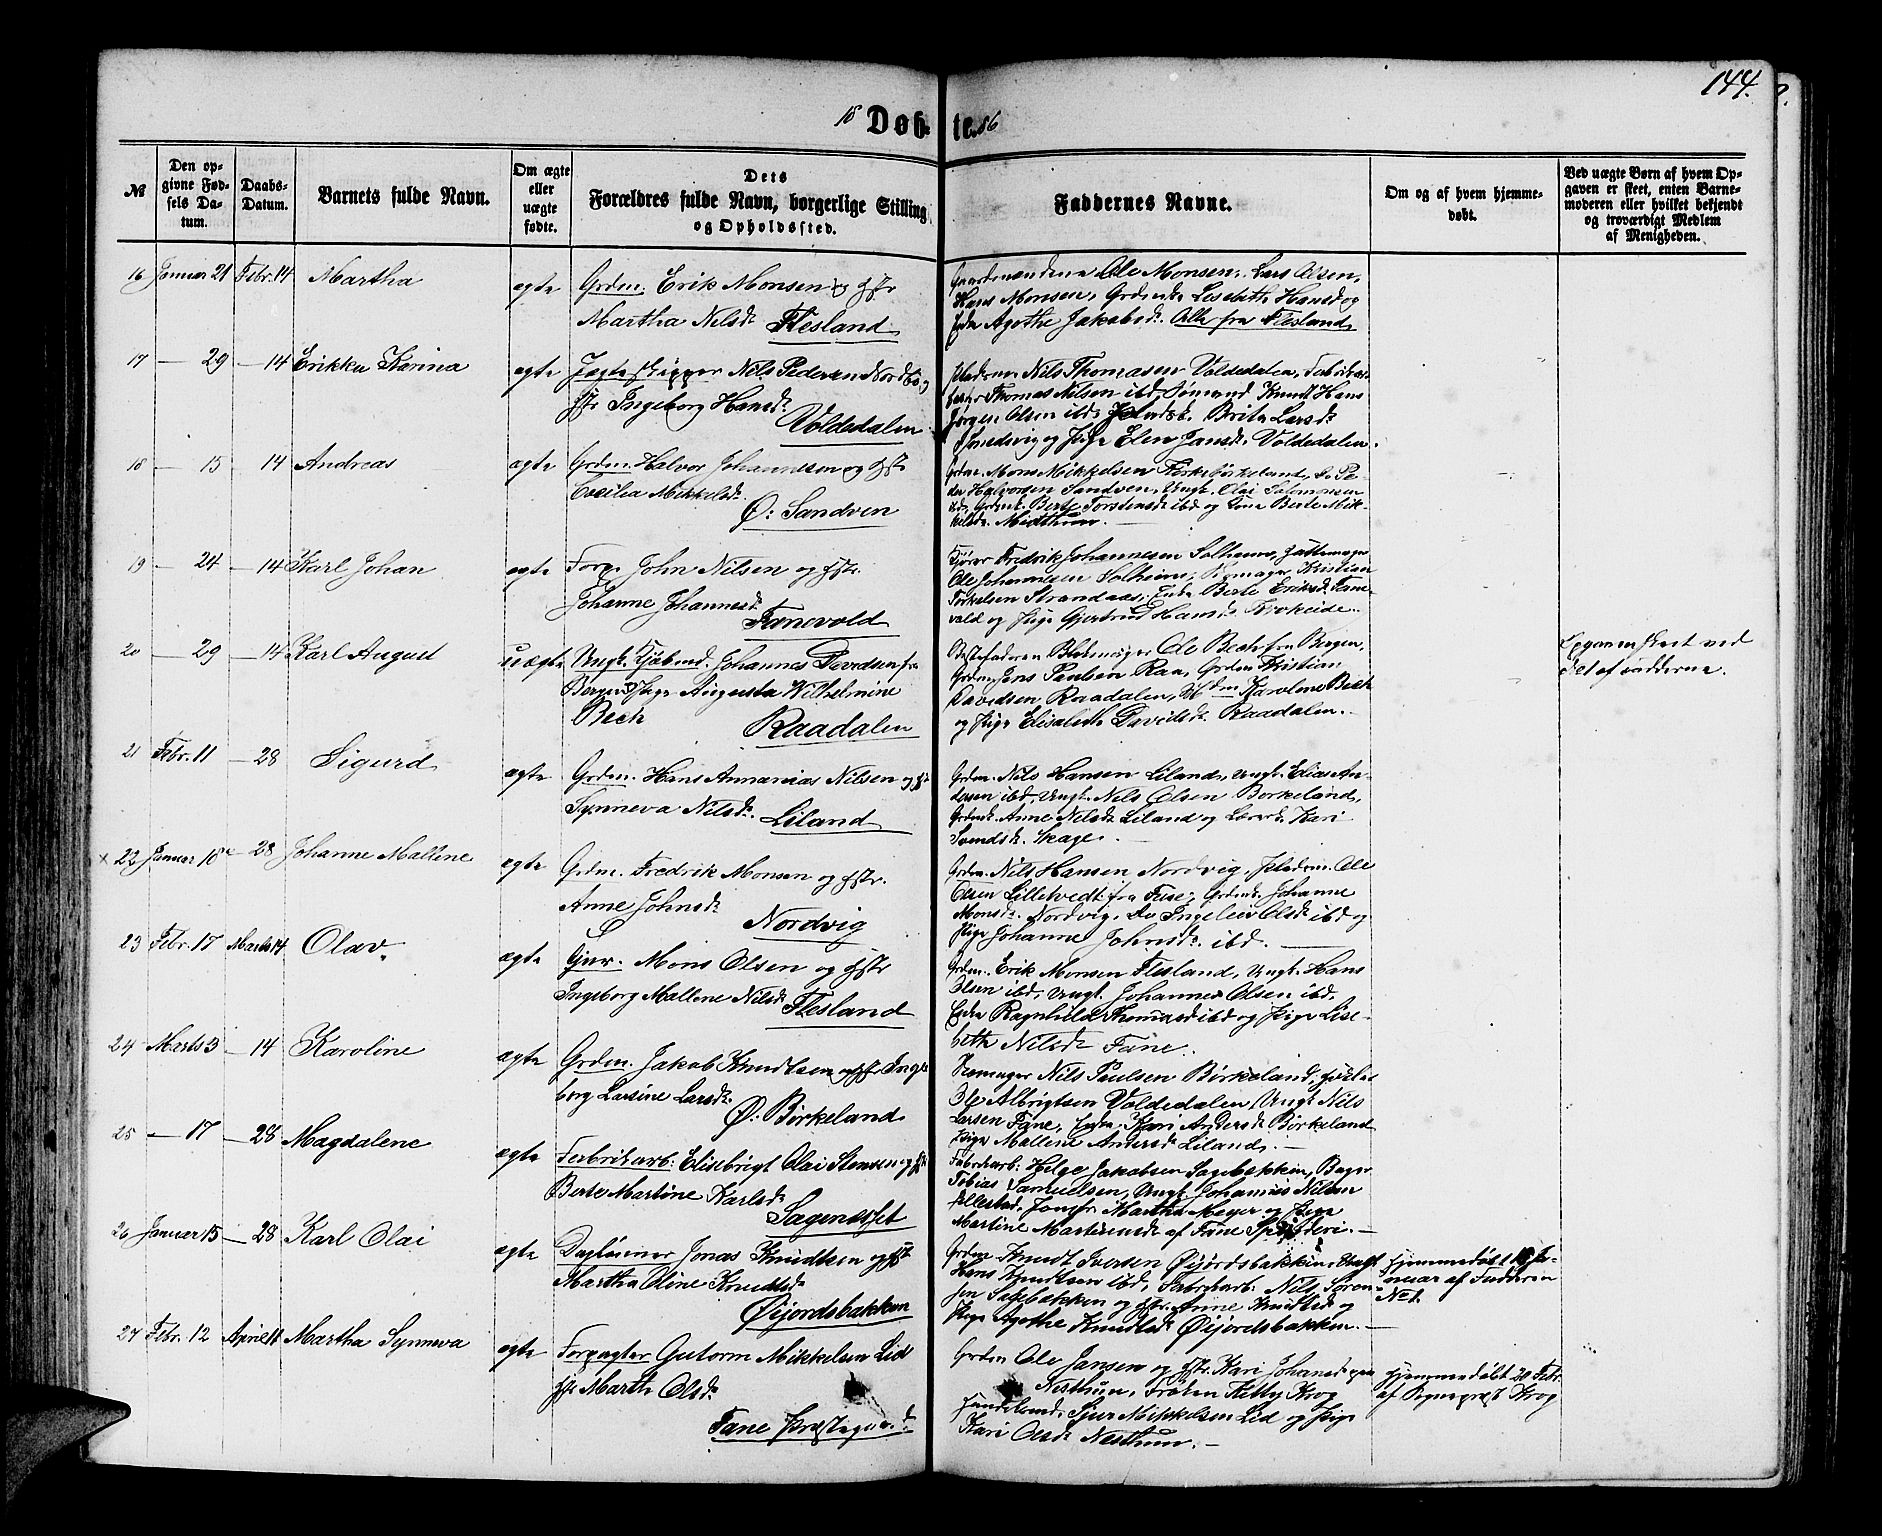 144.
18 Døbte. 86
№
Den opgivne Fødsels Datum.
Daabs-Datum.
Barnets fulde Navn.
Om ægte eller uægte fødte.
Dets Forældres fulde Navn, borgerlige Stilling og Opholdssted.
Faddernes Navne.
Om og af hvem hjemmedøbt.
Ved uægte Børn af hvem Opgaven er skeet, enten Barnemoderen eller hvilket bekjendt og troværdigt Medlem af Menigheden.
16 Januar 21 Febr. 14 Martha ægte Grdm. Erik Monsen og Hstr
Martha Nilsd. Flesland
Gaardmændene Ole Monsen, Lars Olsen,
Hans Monsen, Grdenke Lisebeth Hansd og
Enke Agothe Jakobsd. Alle fra Flesland
17 — 29 — 14 Erikka Karina ægte Jagteskipper Nils Pedersen Nordbø,
Hstr Ingeborg Hansd.
Voldedalen
Pladsm. Nils Thomasen Voldedalen,
Thomas Nilsen ibd, Sømand Knudt Hans
Jørgen Olsen ibd, Brita Larsd.
Smedsvig og Pige Elen Jansd. Voldedalen.
18 — 15 — 14 Andreas ægte Grdm. Halvor Johannesen og Hstr
Cecilia Mikkelsd.
Ø: Sandven
Grdm. Mons Mikkelsen Birkeland, Do Pe-
der Halvorsen Sandven, Ungk. Olai Salomonsen
ibd, Grdenk. Berte Torstensd ibd og Kone Berte Mik-
kelsd. Midthun. —
19 — 24 — 14 Karl Johan ægte Forp. John Nilsen og Hstr.
Johanne Johannesd.
Fanevold
Kjører Fredrik Johannesen Solheim,
Ole Johannesen Solheim, Kristian
Torkelsen Strandaas, Enke Berte Eriksd. Fane-
vold og Pige Gjertrud Hansd. Krokeide.
20 — 29 — 14 Karl August uægte Ungk. Kjøbmd. Johannes Davidsen fra
Bergen og Pige Augusta Wilhelmine
Bech Raadalen
Bestefaderen Ole Bech fra Bergen,
Grdm. Jens Paulsen Raa, Grdm Kristian
Davidsen, Raadalen, Karoline Bech
og Pige Elisabeth Davidsd. Raadalen. —
Opgaven skeet ved
det af Fadderne.
21 Febr. 11 — 28 Sigurd ægte Grdm. Hans Annanias Nilsen og Hst
Synneva Nilsd. Liland
Grdm. Nils Hansen Liland, Ungk. Elias An-
dersen ibd, Ungk. Nils Olsen Borkeland,
Grdenk. Anne Nilsd Liland og Lærer Kari
Svendsd. Skage. —
22 Januar 18 — 28 Johanne Mallene ægte Grdm. Fredrik Monsen og Hstr.
Anne Johnsd.
Nordvig
Grdm. Nils Hansen Nordvig, Pladsm. Ole
Olsen Lilletvedt fra Fuse, Grdenk. Johanne
Monsd. Nordvig, Do Ingeleiv Olsd ibd og
Pige Johanne Johnsd. ibd. —
23 Febr. 17 Marts 14 Olav. ægte Gmr. Mons Olsen og Hstr
Ingeborg Mallene Nilsd.
Flesland
Grdm. Erik Monsen Flesland, Ungk. Hans
Olsen ibd, Ungk. Johannes Olsen ibd.
Enke Ragnhild Thomasd ibd og Pige Lise-
beth Nilsd. Fane.
24 Marts 3 — 14 Karoline ægte Grdm. Jakob Knudtsen og Hstr Inge
borg Larsine Larsd.
Ø: Birkeland
Nils Paulsen Birkeland,
Ole Albrigtsen Voldedalen, Ungk. Nils
Larsen Fane, Enke Kari Andersd. Birkeland
Pige Mallene Andersd. Liland. —
25 — 17 — 28 Magdalene ægte Fabrikarb: Elisebrigt Olai Stensen og Hst
Berte Martine Karlsd.
Sagendsfet
Fabrikarb: Helge Jakobsen Sagebakken, Bager
Tobias Samuelsen, Ungk. Johannes Nilsen
Jomfr Martha Meyer og Pige
Martine Martinusd. af Fane Spinderi. —
26 Januar 15 — 28 Karl Olai ægte Dagleiner Jonas Knudtsen og Hst
Martha Oline Knudsd.
Øijordsbakken
Grdm Knudt Iversen Øijordsbakken, Ungk
Hans Knudtsen ibd, Fabrikarb: Nils Søren-
sen Sagebakken og Hstr. Anne Knudtsd. og
Pige Agothe Knudtsd. Øijordsbakken. —
Hjemmedøbt 18 Ja-
nuar af Fadderen
No 1.
27 Febr. 12 April 11 Martha Synneva ægte Forpagter Gutorm Mikkelsen Lid
Hst Marth Olsd.
Fane Præstegaard.
Grdm Ole Jansen og Hstr. Kari Johannesd.
Nesthun, Frøken Kitty Krog
Sjur Mikkelsen Lid og Pige
Kari Olsd. Nesthun. —
Hjemmedøbt 20 Febr.
af Sognepræst Krog